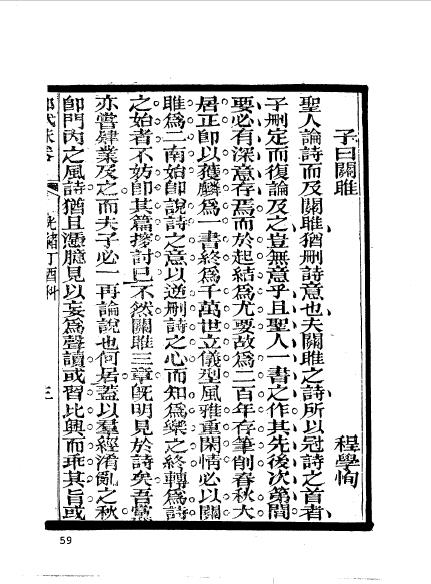 子曰關雎　程學恂
聖人論詩而及關雎猶刪詩意也夫關雎之詩所以冠詩之首者
子刪定而復論及之豈無意乎且聖人一書之作其先後次第間
要必有深意存焉而於起結為尤要故為二百年存筆削春秋大
居正即以獲麟為一書終為千萬世立儀型風雅重閑情必以關
雎為二南始即說詩之意以逆刪詩之心而知為樂之終轉為詩
之始者不妨即其篇擬討已不然關雎三章既明見於詩矣吾黨
亦嘗肄業及之而夫子必一再論說也何居蓋以羣經淆亂之秋
即門丙之風詩猶且濡臆見以妄為聲讀或習比興而乖其旨或
光緒丁酉科
三
59